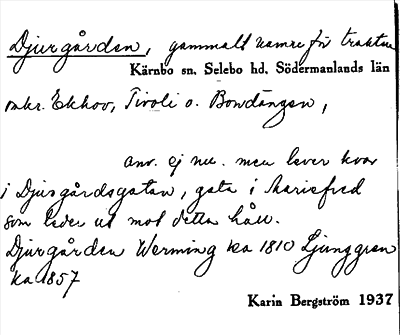 Djurgården, gammalt namn för trakten
Kärnbo sn. Selebo hd. Södermanlands län
omkr. Ekhov, Tivoli o. Bondängen,
anv. ej nu. men lever kvar
i Djurgårdsgatan, gata i Mariefred
som leder ut mot detta håll.
Djurgården Werming ka 1810 Ljunggren
ka 1857
Karin Bergström 1937